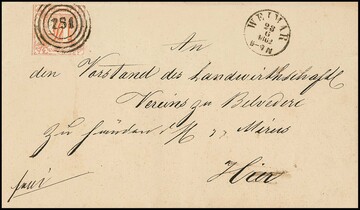 WEIMAR
28
6
1862
An
den Vorstand des Landwirthschaftl
Vereins zu Belvedere
zu Händen d H Mirus
Hier
frei